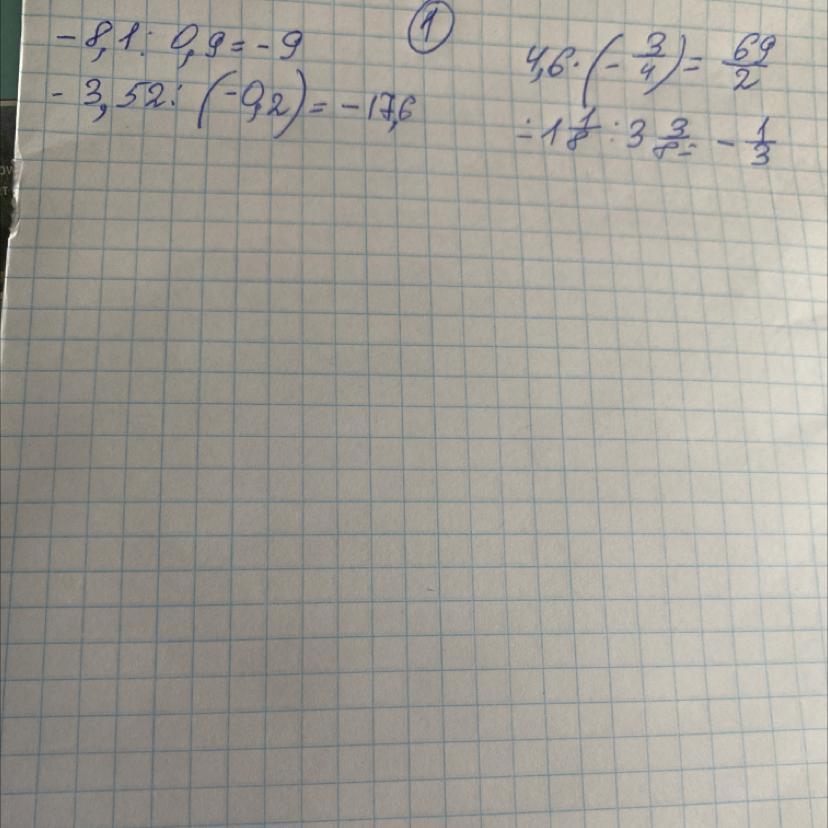 1
-8,1 : 0,9 = -9
-3,52 : (-0,2) = -17,6
4,6 · (-3/4) = 69/2
-1 1/8 : 3 3/8 = -1/3